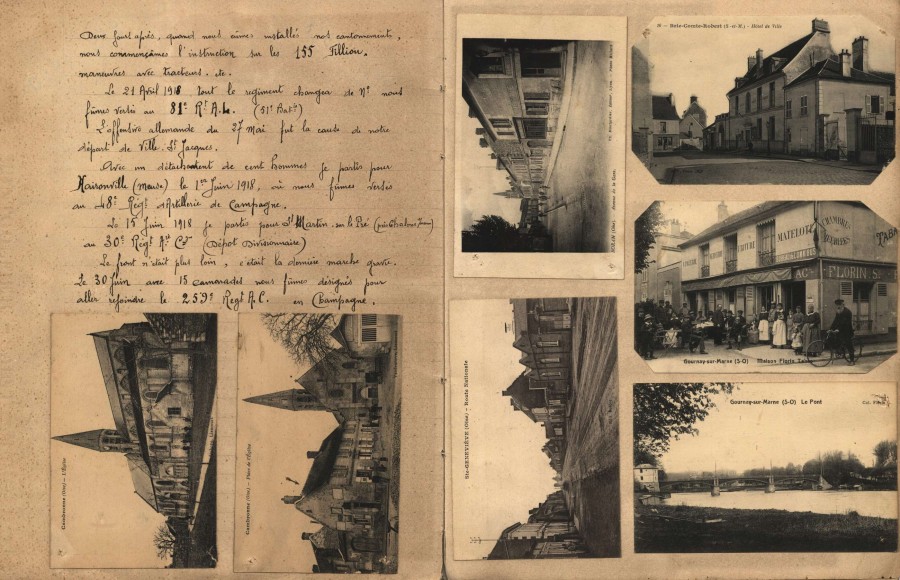 Deux jours après, quand nous eûmes installés nos cantonnements,
nous commençâmes l'instruction sur les 155 Fillion.
manœuvres avec tracteurs. etc.
Le 21 Avril 1918 tout le regiment changea de N° nous
fûmes versés au 81e Rt A.L. (51e Batie)
L'offensive allemande du 27 Mai fut la cause de notre
départ de Ville-St Jacques.
Avec un détachement de cent hommes je partis pour
Haironville (Meuse) le 1er Juin 1918, où nous fûmes versés
au 48e Régt d'Artillerie de Campagne.
Le 15 Juin 1918 je partis pour St Martin-sur le Pré (près Chalons
au 30e Régt A. Cie (Dépôt Divisionnaire)
Le front n'était plus loin, c'était la dernière marche gravie.
Le 30 Juin avec 15 camarades nous fûmes désignés pour
aller rejoindre le 259e Regt A.C. en Champagne.
Cambronne (Oise) - L'Église
Cambronne (Oise) - Place de l'Église
Avenue de la Gare.
Ste-GENEVIÈVE (Oise) - Route Nationale
Brie-Comte-Robert (S.-et-M.) - Hôtel de Ville
FRITURE
MATELOTE
CHAMBRES
TABA
FLORIN
Gournay-sur-Marne (S-O) Maison Florin
Gournay-sur-Marne (S-O) Le Pont